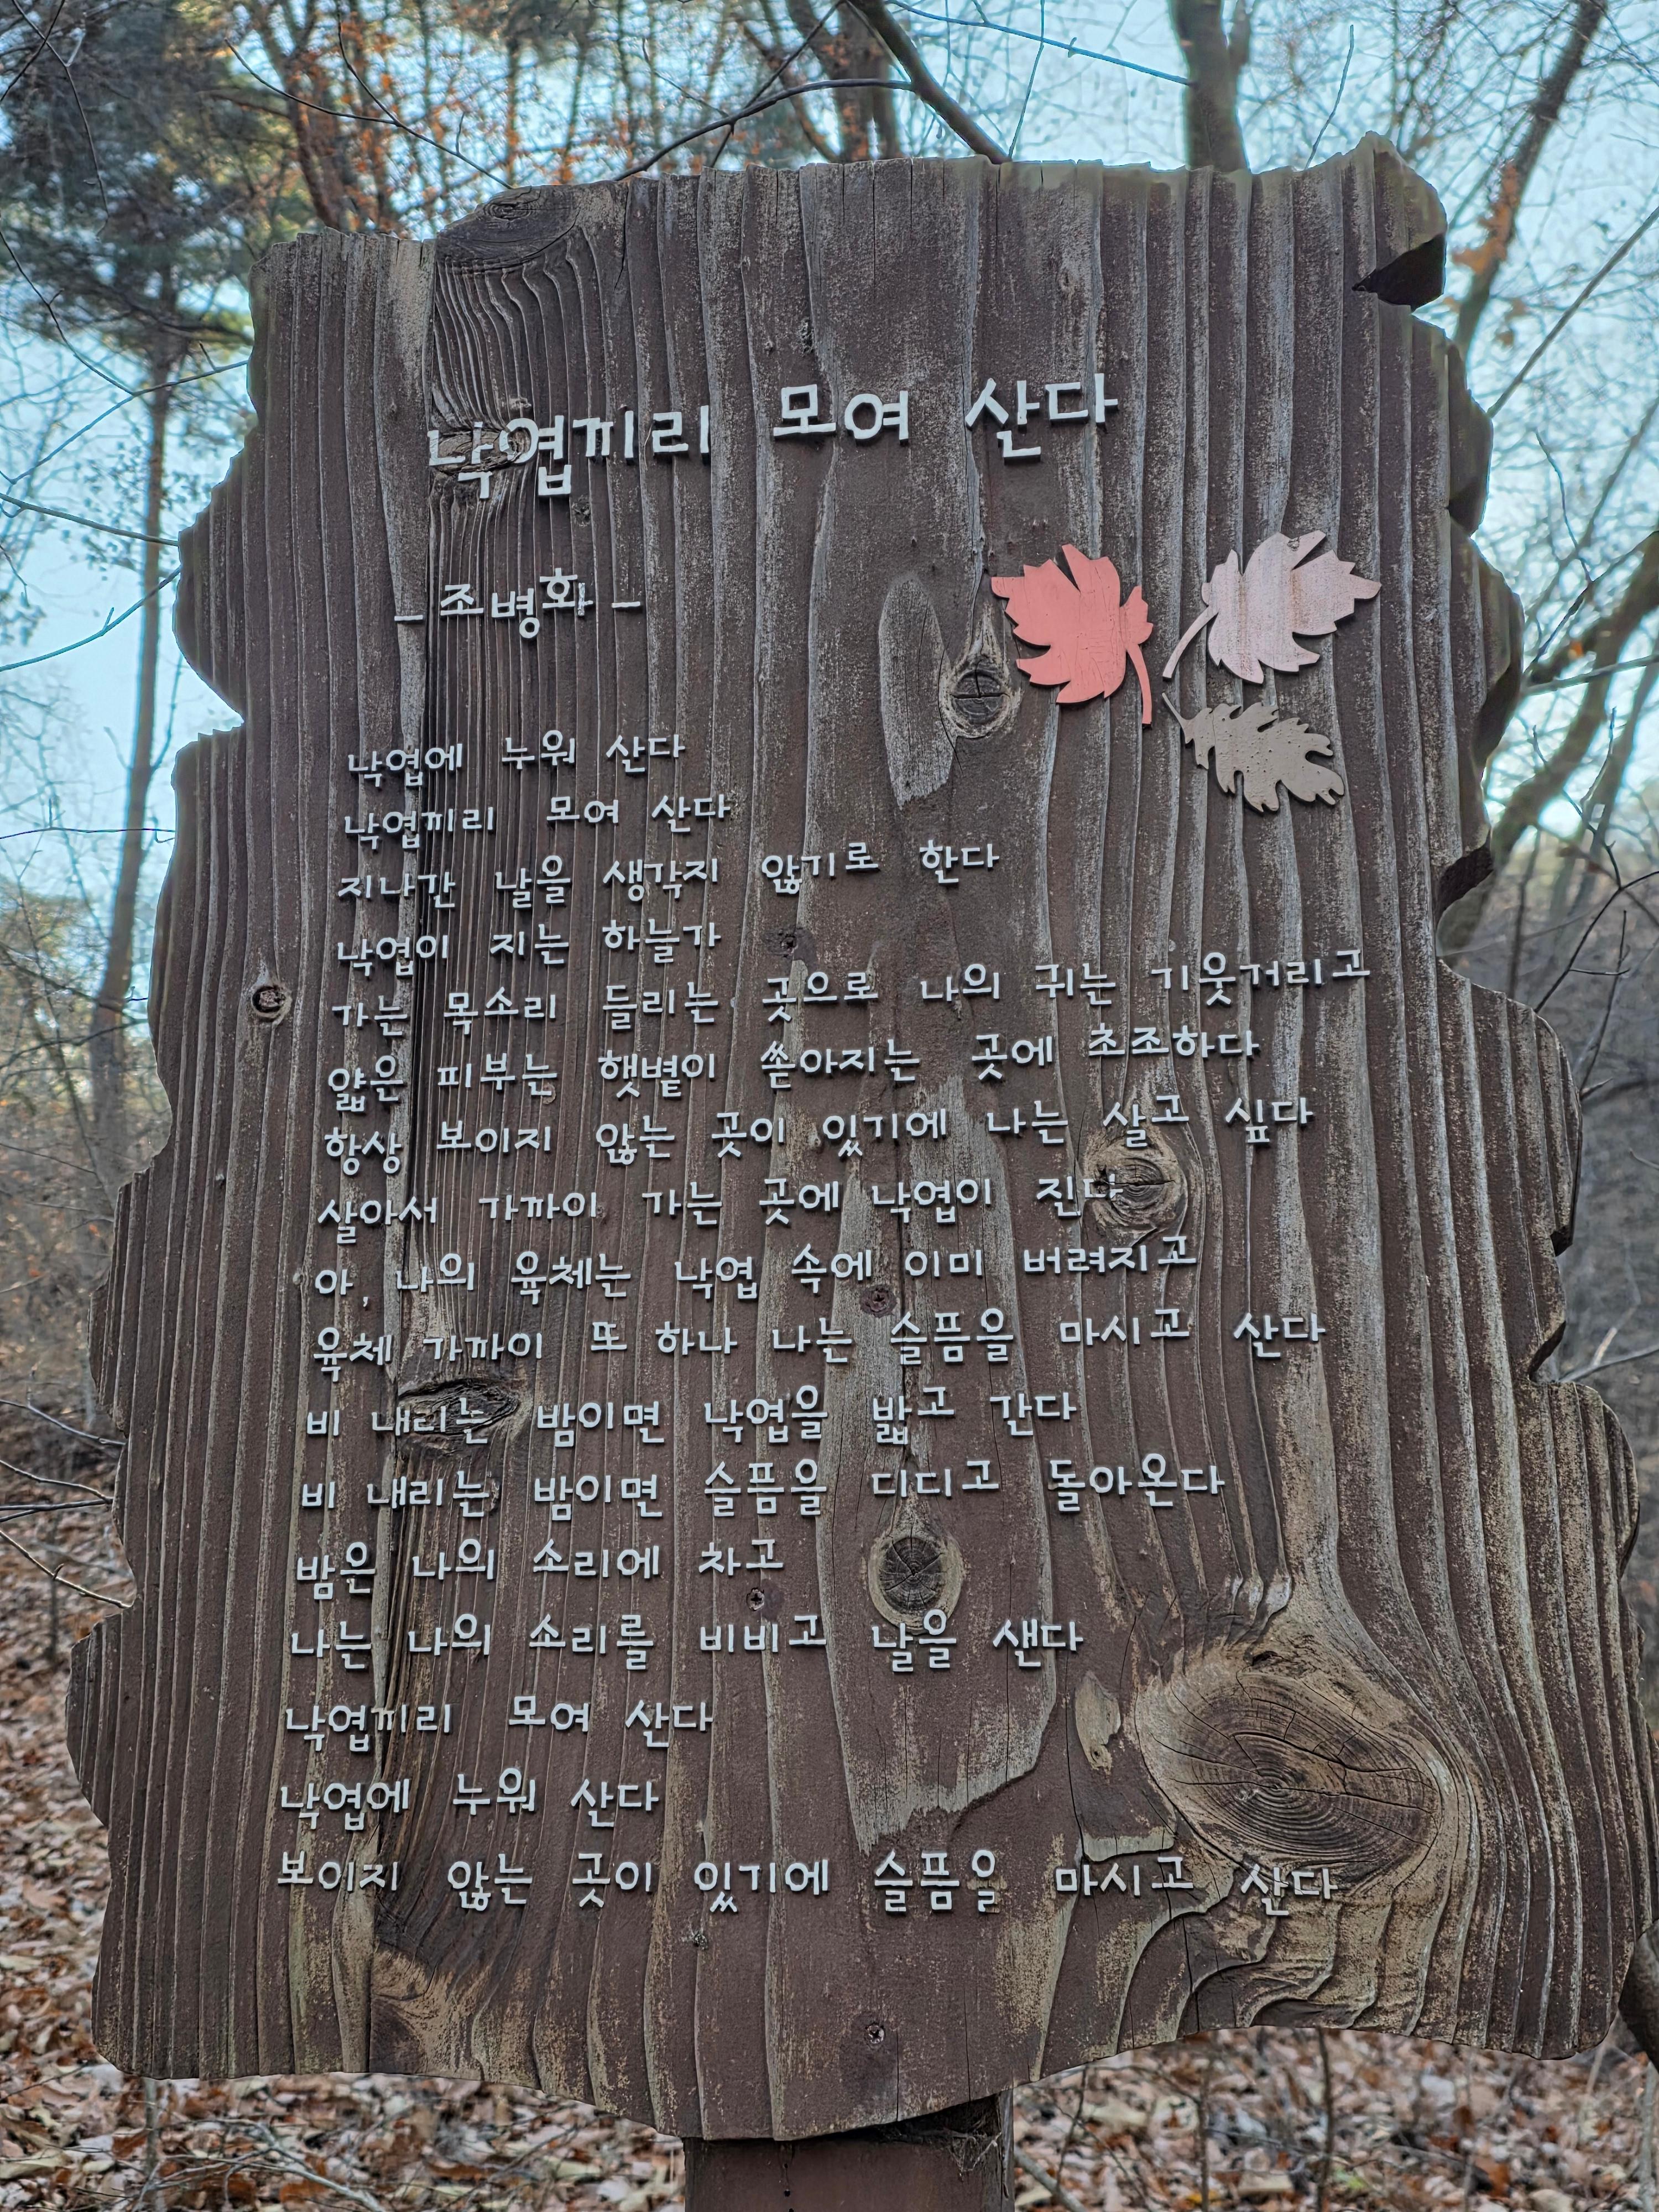 낙엽끼리 모여 산다
- 조병화 -
낙엽에 누워 산다
낙엽끼리 모여 산다
지나간 날을 생각지 않기로 한다
낙엽이 지는 하늘가
가는 목소리 들리는 곳으로 나의 귀는 기웃거리고
얇은 피부는 햇볕이 쏟아지는 곳에 초조하다
항상 보이지 않는 곳이 있기에 나는 살고 싶다
살아서 가까이 가는 곳에 낙엽이 진다
아, 나의 육체는 낙엽 속에 이미 버려지고
육체 가까이 또 하나 나는 슬픔을 마시고 산다
비 내리는 밤이면 낙엽을 밟고 간다
비 내리는 밤이면 슬픔을 디디고 돌아온다
밤은 나의 소리에 차고
나는 나의 소리를 비비고 날을 샌다
낙엽끼리 모여 산다
낙엽에 누워 산다
보이지 않는 곳이 있기에 슬픔을 마시고 산다